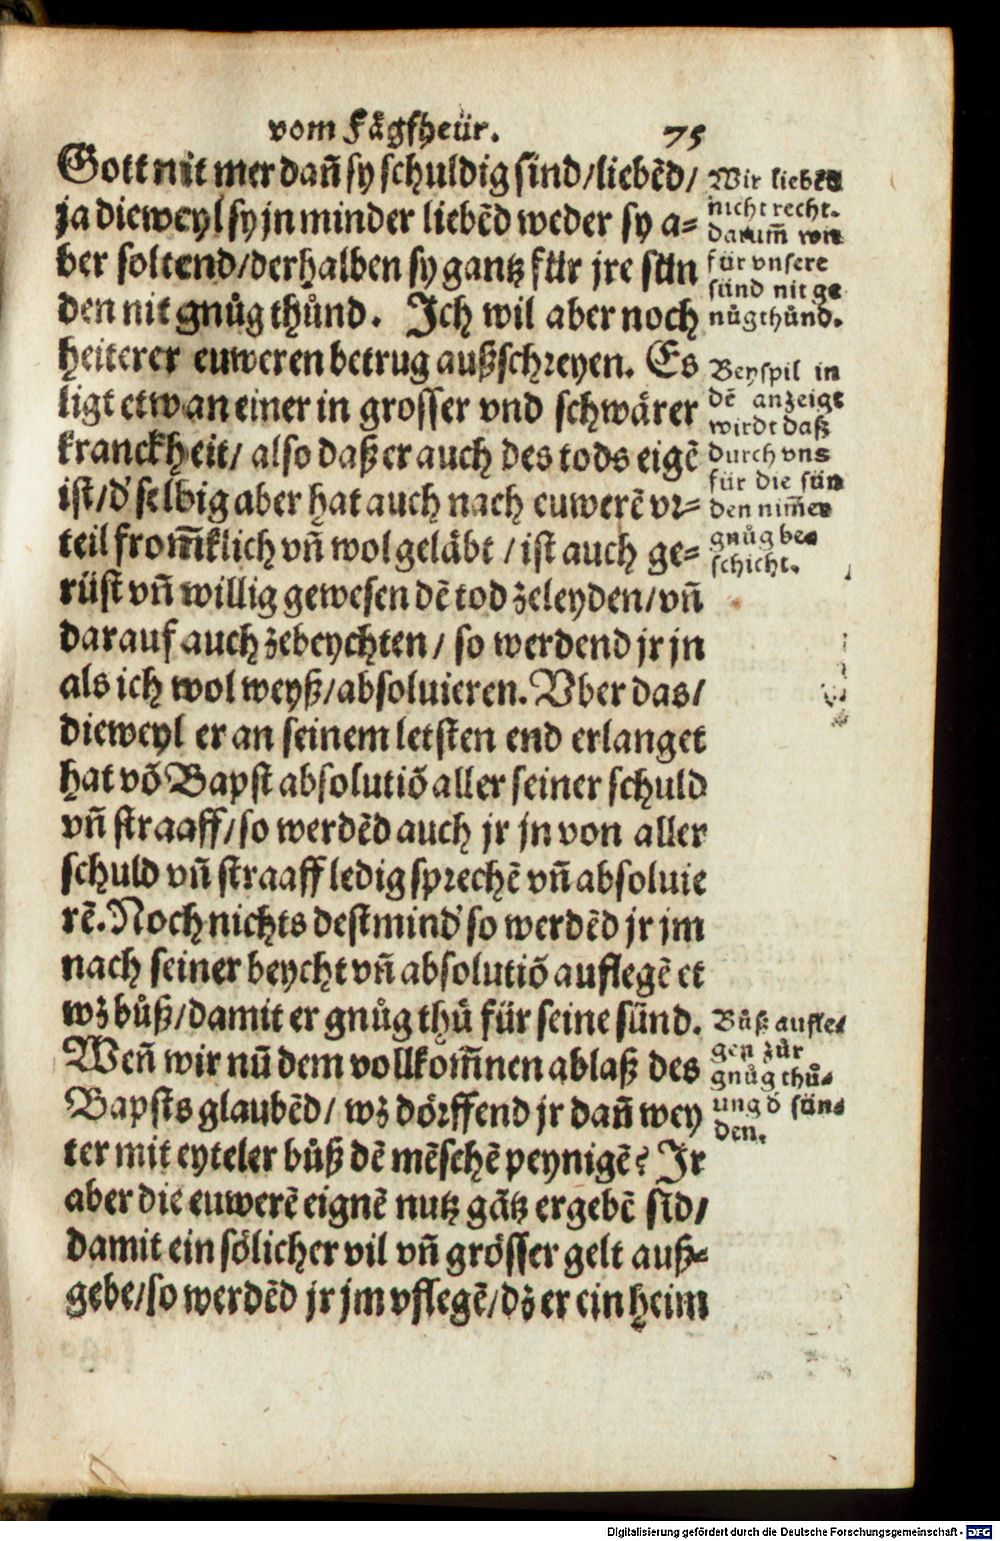 vom Fägfheür. 75
Gott nit mer dañ sy schuldig sind/liebẽd/
ja dieweyl sy jn minder liebẽd weder sy a-
ber soltend/derhalben sy gantz für jre sün
den nit gnůg thůnd. Ich wil aber noch
heiterer euweren betrug außschreyen. Es
ligt etwan einer in grosser vnd schwärer
kranckheit/ also daß er auch des tods eigẽ
ist/d'selbig aber hat auch nach euwerẽ vr-
teil from̃klich vñ wol geläbt /ist auch ge-
rüst vñ willig gewesen dẽ tod zeleyden/vñ
darauf auch zebeychten/ so werdend jr jn
als ich wol weyß/absoluieren. Vber das/
dieweyl er an seinem letsten end erlanget
hat võ Bapst absolutiõ aller seiner schuld
vñ straaff/so werdẽd auch jr jn von aller
schuld vñ straaff ledig sprechẽ vñ absoluie
rẽ. Noch nichts destmind' so werdẽd jr jm
nach seiner beycht vñ absolutiõ auflegẽ et
wz bůß/damit er gnůg thů für seine sünd.
Weñ wir nũ dem vollkom̃nen ablaß des
Bapsts glaubẽd/ wz dörffend jr dañ wey
ter mit eyteler bůß dẽ mẽschẽ peynigẽ? Ir
aber die euwerẽ eignẽ nutz gãtz ergebẽ sĩd/
damit ein sölicher vil vñ grösser gelt auß-
gebe/so werdẽd jr jm vflegẽ/dz er ein heim
Wir lieben
nicht recht.
darum̃ wir
für vnsere
sünd nit ge
nůgthůnd.
Beyspil in
dẽ anzeigt
wirdt daß
durch vns
für die sün
den nim̃er
gnůg be-
schicht.
Bůß aufle-
gen zůr
gnůg thů-
ung d' sün-
den.
Digitalisierung gefördert durch die Deutsche Forschungsgemeinschaft - DFG